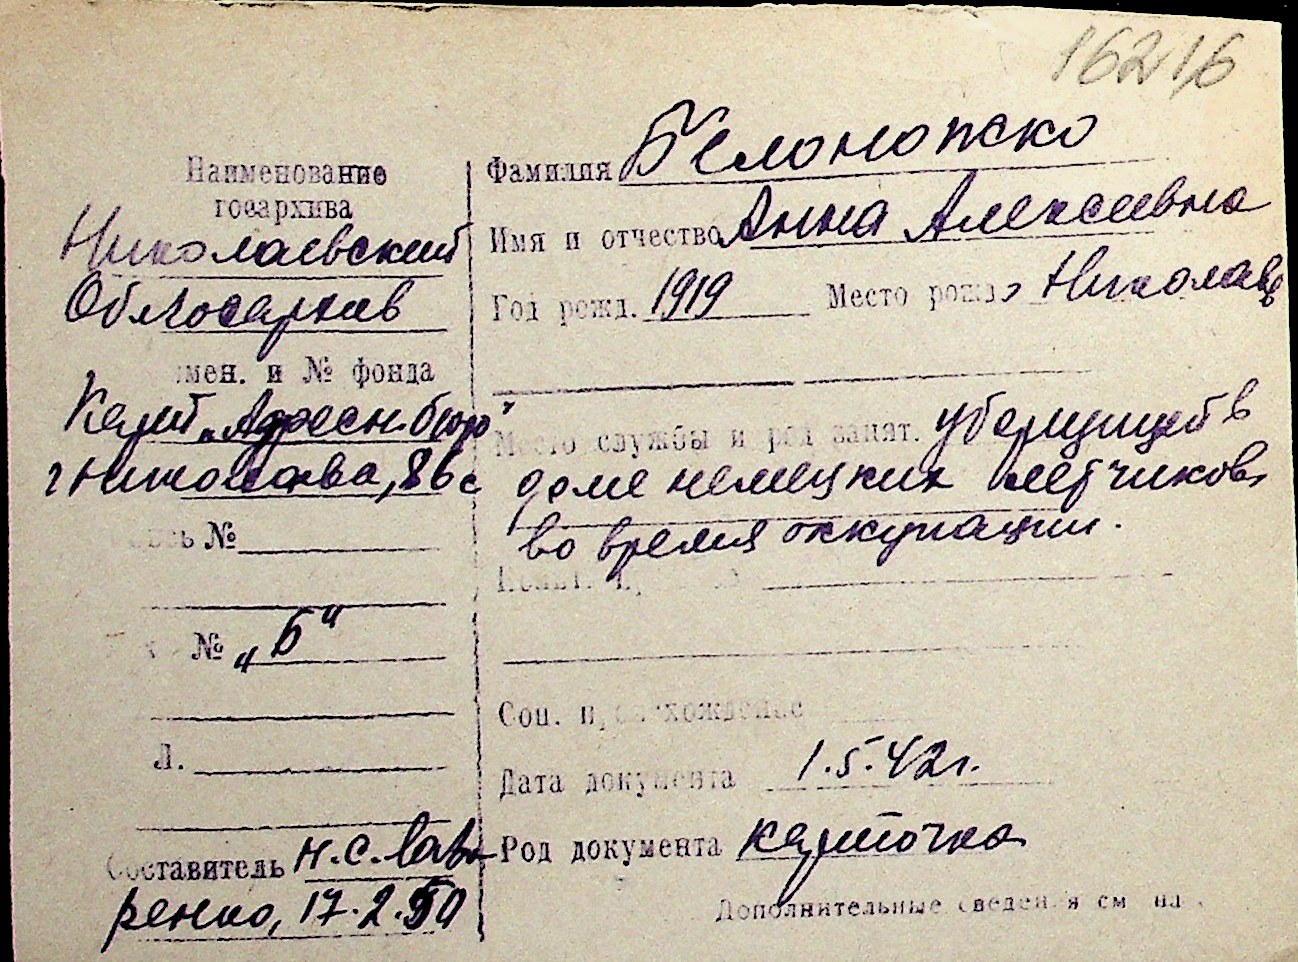 16216
Наименование
госархива
Николаевский
Облгосархив
мен. и № фонда
Карт. „Адресн. бюро"
г. Николаева, 86 с
№
№ „Б"
Л.
Составитель Н.С. Лав-
ренко, 17.2.50
Фамилия
Имя и отчество Анна Алексеевна
Год рожд. 1919 Место рожд. Николаев
Место службы и род занят. уборщицей в
доме немецких летчиков
во время оккупации.
Соц. происхождение
Дата документа 1.5.42г.
Род документа карточка
Дополнительные сведения см. на